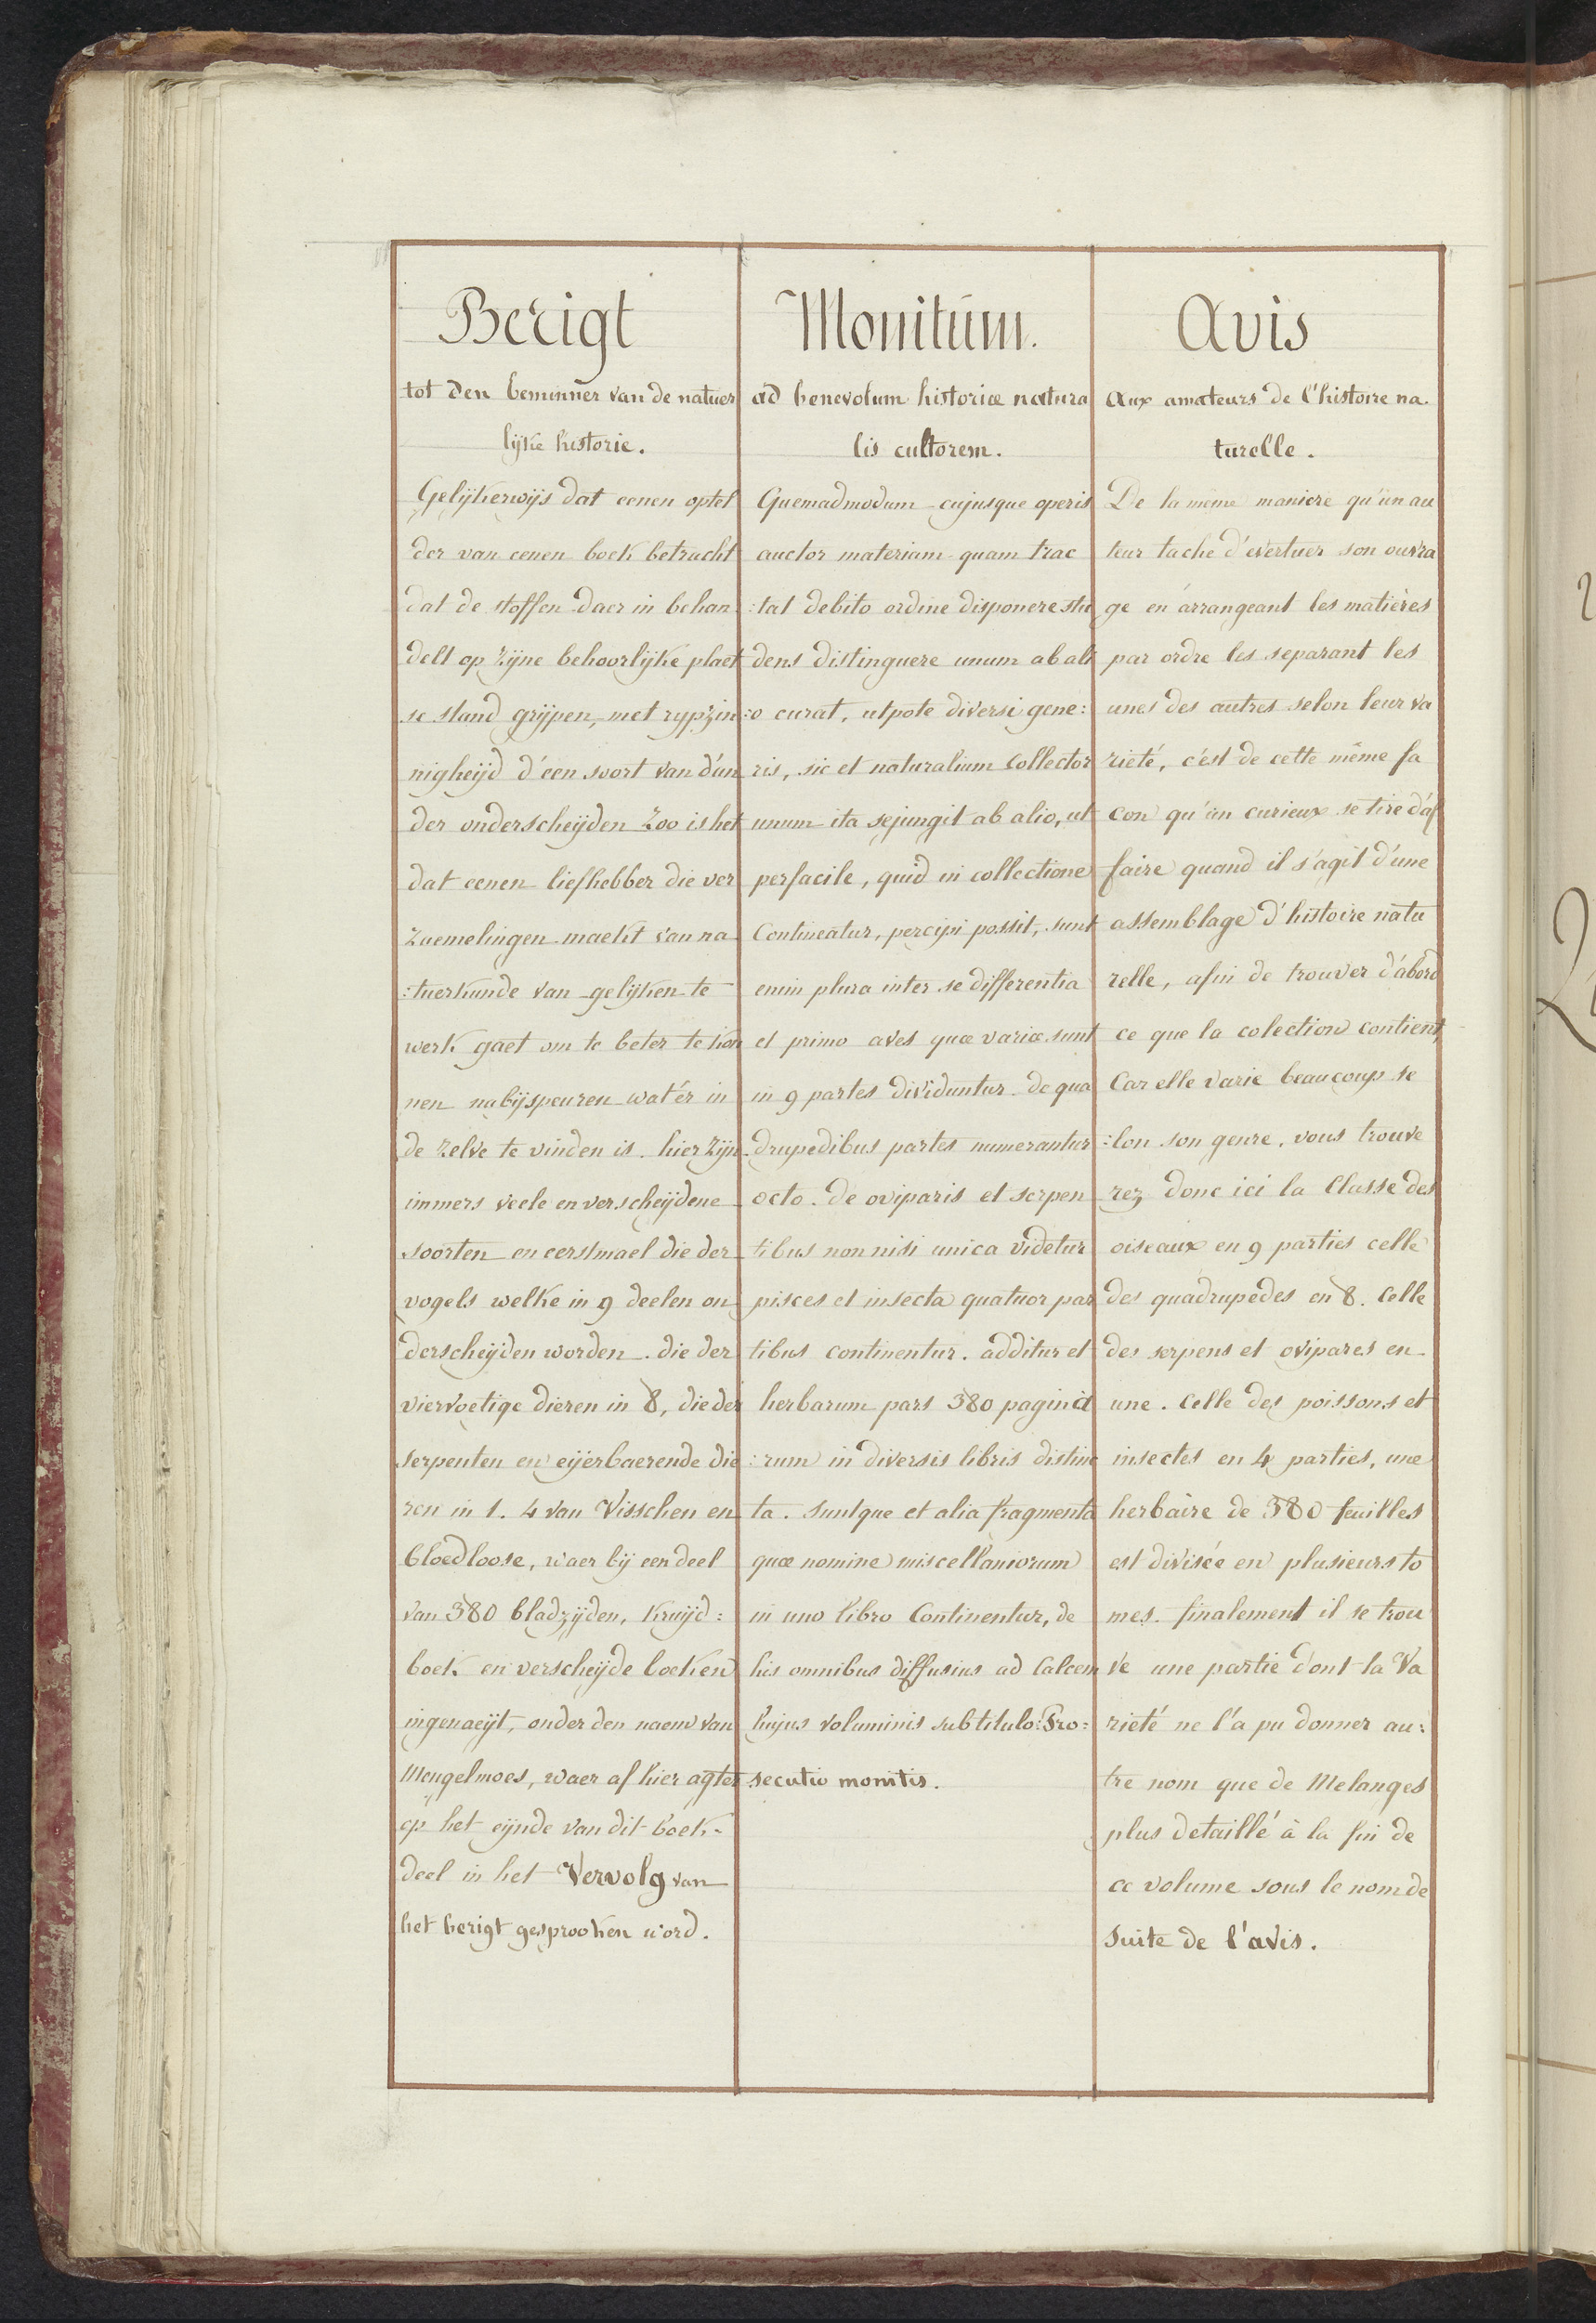 Berigt
tot den beminner van de natuer
lijke historie.
Gelijkerwijs dat eenen optel
der van eenen boek betracht
dat de stoffen daer in behan
delt op zijne behoorlijke plaet
se stand grijpen, met rypzin
nigheijd d'een soort van d'an
der onderscheijden zoo is het
dat eenen liefhebber die ver
zaemelingen maekt van na
:tuerkunde van gelijken te
werk gaet om te beter te kon
nen nabijspeuren wat'er in
de zelve te vinden is. hier zijn
immers veele en verscheijdene
soorten en eerstmael die der
vogels welke in 9 deelen on
derscheijden worden. die der
viervoetige dieren in 8, die der
serpenten en eijerbaerende die
ren in 1. 4 van Visschen en
bloedloose, waer bij een deel
van 380 bladzijden, Kruijd:
boek en verscheijde boeken
ingenaeijt, onder den naem van
Mengelmoes, waer af hier agter
op het eijnde van dit boek-
deel in het Vervolg van
het berigt gesprooken word.
Monitum.
ad benevolum historiæ natura
lis cultorem.
Quemadmodum cujusque operis
auctor materiam quam trac
:tat debito ordine disponere stu
dens distinguere unum ab ali
:o curat, utpote diversi gene:
ris, sic et naturalium Collector
unum ita sejungit ab alio, ut
perfacile, quid in collectione
Contineatur, percipi possit, sunt
enim plura inter se differentia
et primo aves quæ variæ sunt
in 9 partes dividuntur. de qua
drupedibus partes numerantur
octo. de oviparis et serpen
tibus non nisi unica videtur
pisces et insecta quatuor par
tibus continentur. additur et
herbarum pars 380 pagina
:rum in diversis libris distinc
ta. suntque et alia fragmenta
quæ nomine miscellaniorum
in uno libro Continentur, de
his omnibus diffusius ad Calcem
hujus voluminis sub titulo: Pro:
secutio monitis.
Avis
Aux amateurs de l'histoire na.
turelle.
De la même maniere qu'un au
teur tache d'evertuer son ouvra
ge en arrangeant les matières
par ordre les separant les
unes des autres selon leur va
rieté, c'est de cette même fa
con qu'un curieux se tire d'af
faire quand il s'agit d'une
assemblage d'histoire natu
relle, afin de trouver d'abord
ce que la colection contient,
Car elle varie beaucoup se
:lon son genre, vous trouve
rez donc ici la Classe des
oiseaux en 9 parties celle
des quadrupedes en 8. Celle
des serpens et ovipares en
une. Celle des poissons et
insectes en 4 parties, une
herbaire de 380 feuilles
est divisée en plusieurs to
mes. finalement il se trou
ve une partie d'ont la Va
rieté ne l'a pu donner au:
tre nom que de Melanges
plus detaillé à la fin de
ce volume sous le nom de
Suite de l'avis.